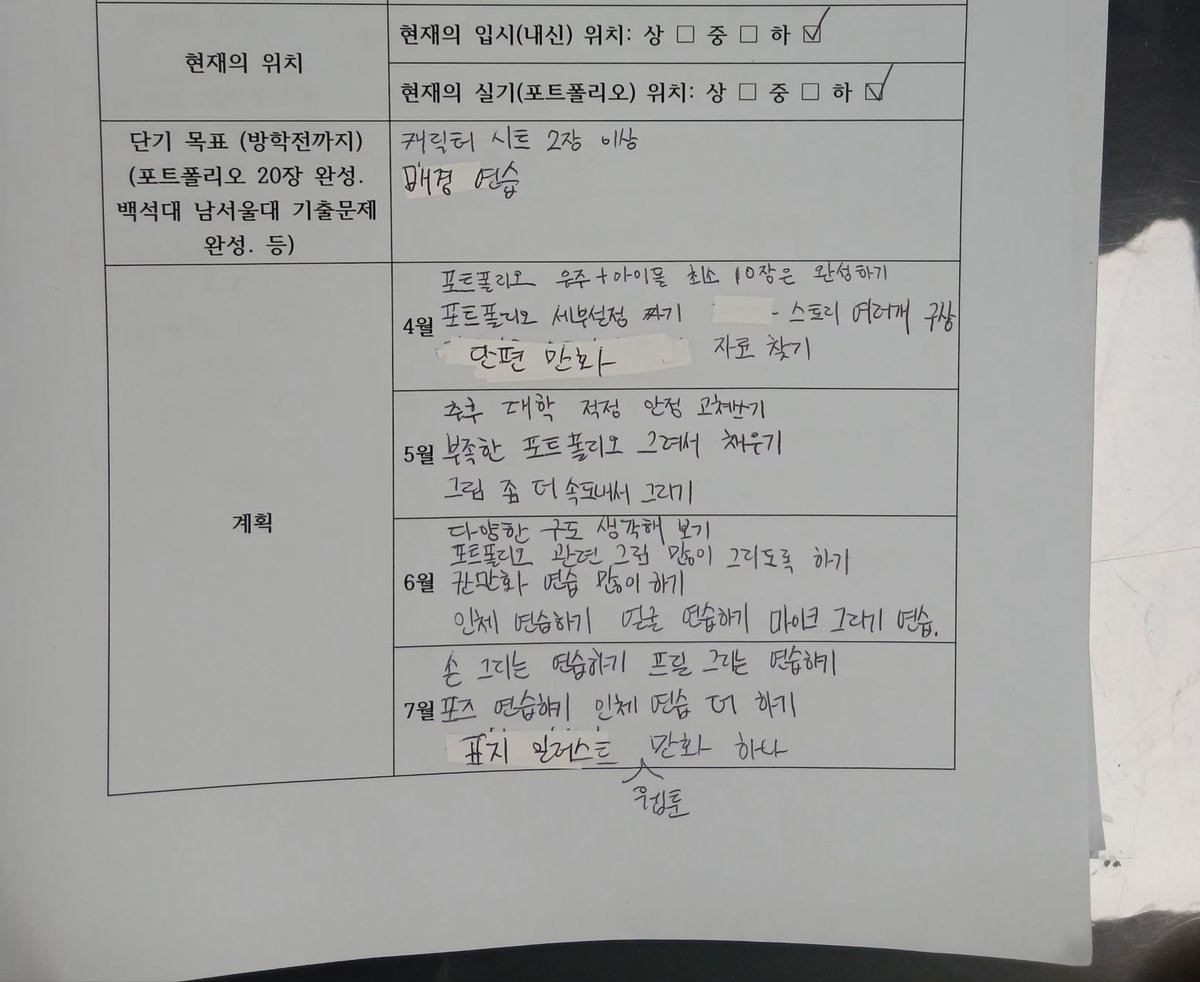 현재의 위치
현재의 입시(내신) 위치: 상 □ 중 □ 하 ☑
현재의 실기(포트폴리오) 위치: 상 □ 중 □ 하 ☑
단기 목표 (방학전까지)
(포트폴리오 20장 완성.
백석대 남서울대 기출문제
완성. 등)
캐릭터 시트 2장 이상
배경 연습
계획
4월
포트폴리오 우주+아이돌 최소 10장은 완성하기
포트폴리오 세부설정 짜기 - 스토리 여러개 구상
단편 만화 자료 찾기
5월
추후 대학 적정 안정 고쳐쓰기
부족한 포트폴리오 그려서 채우기
그림 좀 더 속도내서 그리기
6월
다양한 구도 생각해 보기
포트폴리오 관련 그림 많이 그리도록 하기
칸만화 연습 많이 하기
인체 연습하기 얼굴 연습하기 마이크 그리기 연습.
7월
손 그리는 연습하기 프릴 그리는 연습하기
포즈 연습하기 인체 연습 더 하기
표지 일러스트 웹툰 만화 하나